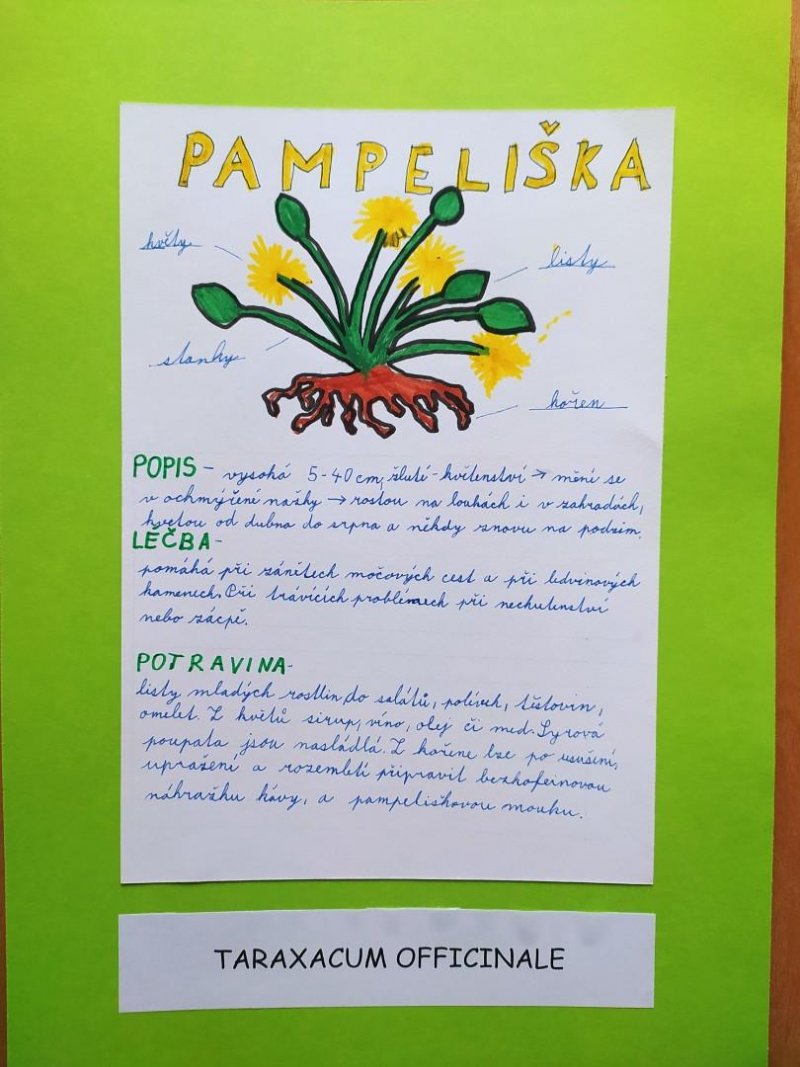 PAMPELIŠKA
květy
listy
stonky
kořen
POPIS - vysoká 5-40 cm, žluté-květenství → mění se
v ochmýření nažky → rostou na loukách i v zahradách,
kvetou od dubna do srpna a někdy znovu na podzim.
LÉČBA -
pomáhá při zánětech močových cest a při ledvinových
kamenech. Při trávících problémech při nechutenství
nebo zácpě.
POTRAVINA-
listy mladých rostlin, do salátů, polívek, těstovin,
omelet. Z květů sirup, víno, olej či med. Syrová
poupata jsou nasládlá. Z kořene lze po usušení,
upražení a rozemletí připravit bezkofeinovou
náhražku kávy, a pampeliškovou mouku.
TARAXACUM OFFICINALE